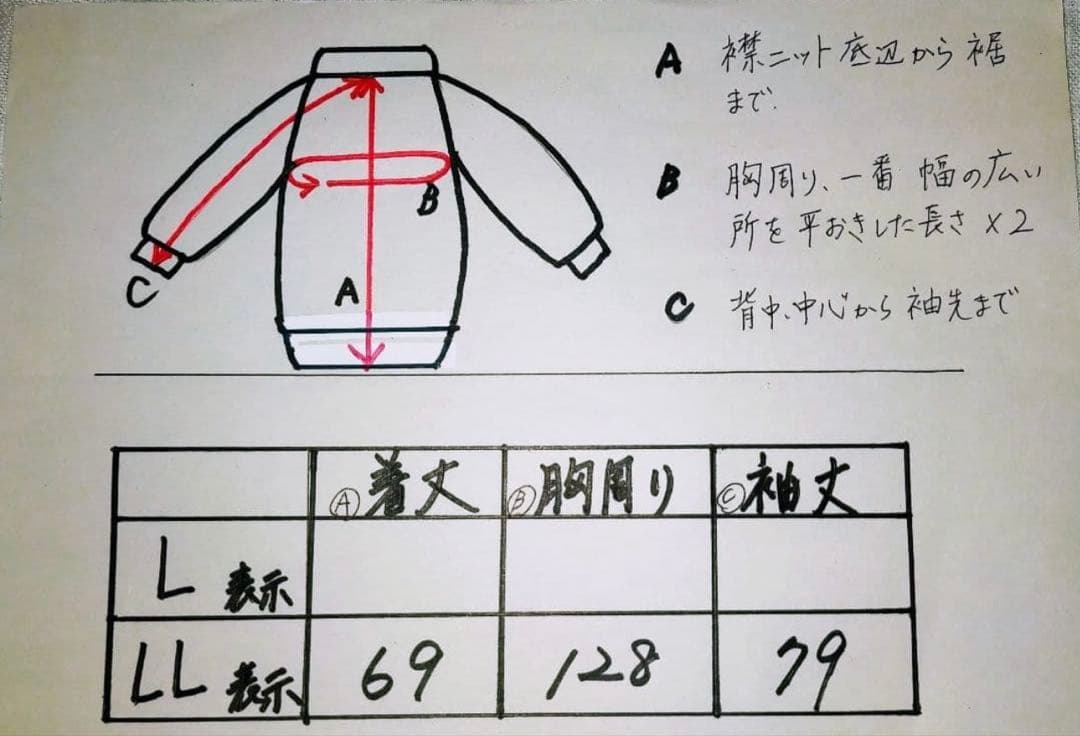 A 襟ニット底辺から裾
まで.
B 胸周り、一番 幅の広い
所を平おきした長さ×2
C 背中、中心から袖先まで
B
C
A
Ⓐ着丈 Ⓑ胸周り Ⓒ袖丈
L 表示
LL 表示 69 128 79